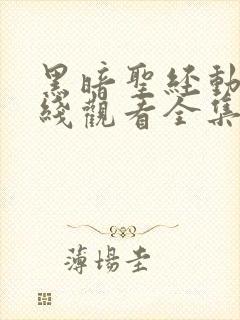 黑暗聖經動
綫觀看全集
薄場圭